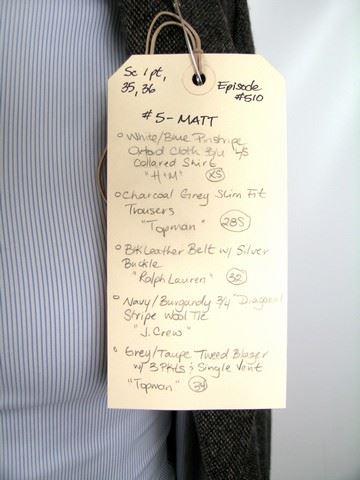 Sc 1pt,
35, 36
Episode
#510
#5 - MATT
White/Blue Pinstripe
Oxford Cloth B/U L/S
Collared Shirt
"H+M" XS
Charcoal Grey Slim Fit
Trousers
"Topman" 28S
Blk Leather Belt w/ Silver
Buckle
"Ralph Lauren" 32
Navy/Burgandy 3/4" Diagonal
Stripe Wool Tie
"J. Crew"
Grey/Taupe Tweed Blazer
w/ 3 Pkts & Single Vent
"Topman" 34